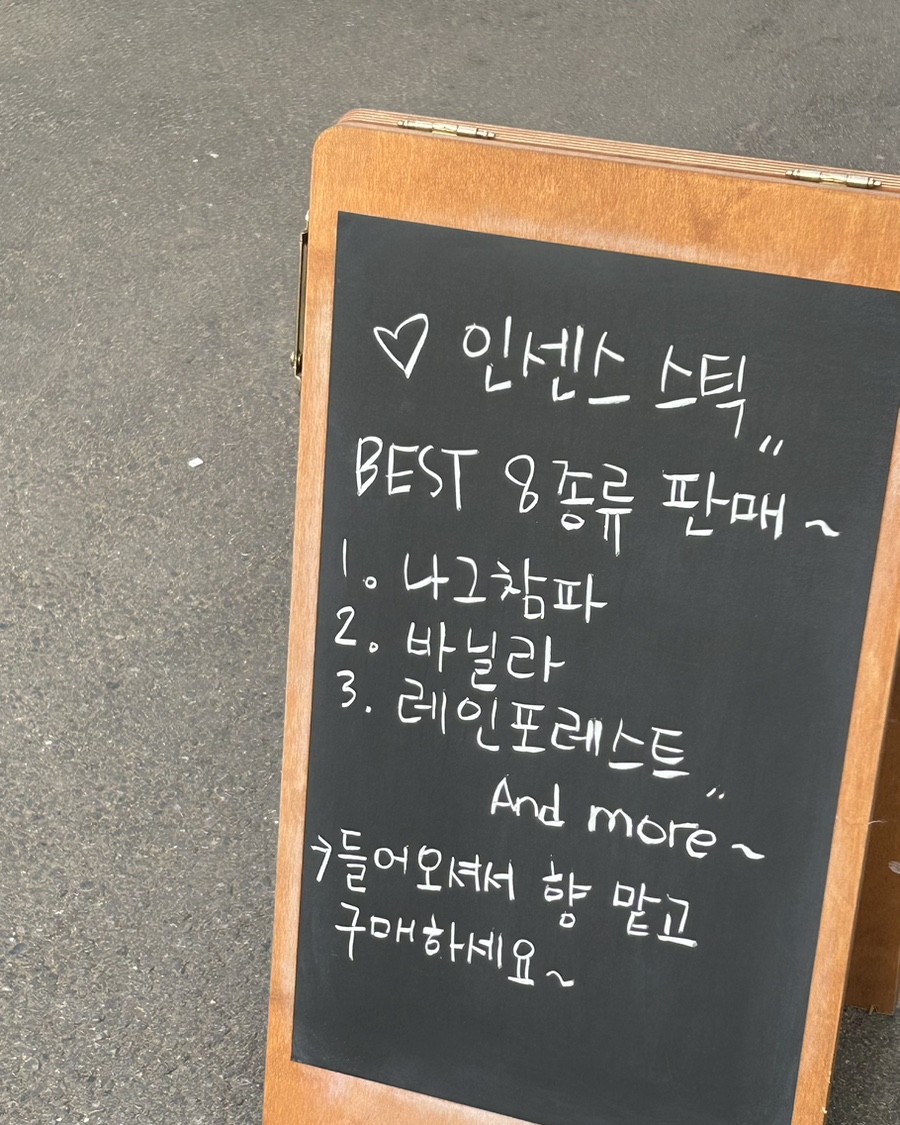 ♡ 인센스 스틱"
BEST 8종류 판매~
1. 나그참파
2. 바닐라
3. 레인포레스트"
And more~
→들어오셔서 향 맡고
구매하세요~